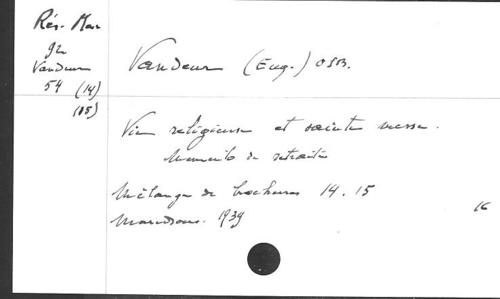 Rés. Mar
92
Vandeur
54 (14)
(15)
Vandeur (Eug.) OSB.
Vie religieuse et sainte messe.
Memento de retraite
Mélange de brochures 14.15
Maredsous. 1939
16